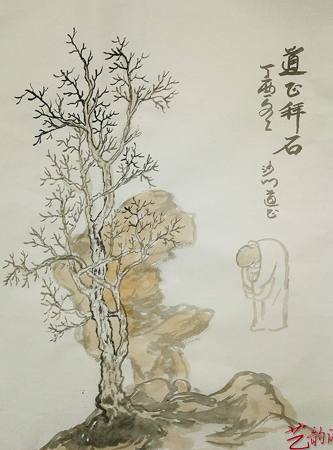 道正拜石
丁酉
沙门道正
艺的